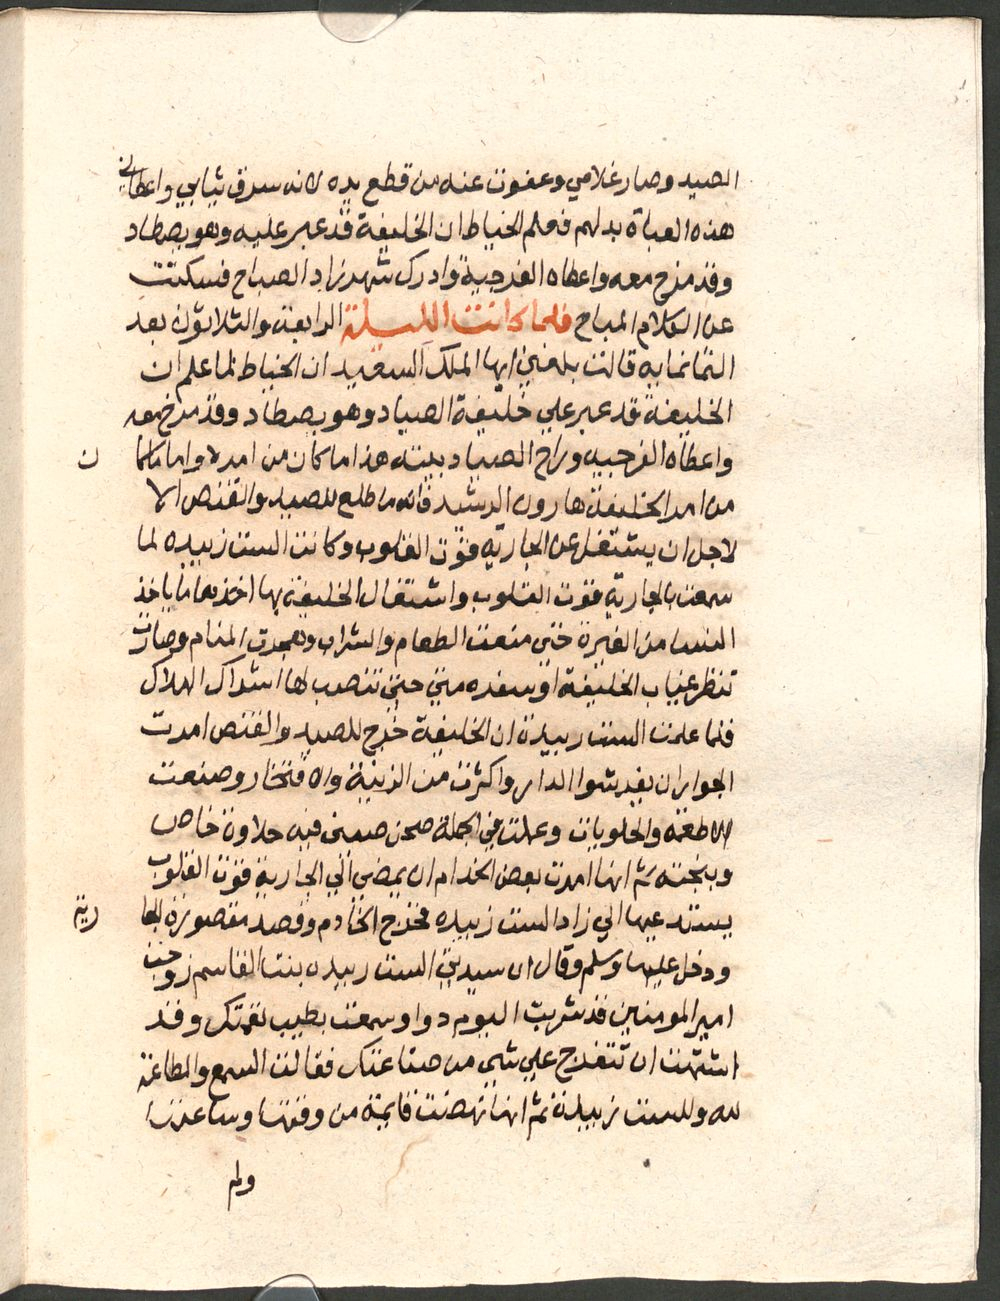 الصيد وصار غلامي وعفوت عنه من قطع يده لانه سرق ثيابي واعطاني
هذه العباة بدلهم فعلم الخياط ان الخليفة قد عبر عليه وهو يصطاد
وقد مزح معه واعطاه الفرجية وادرك شهرزاد الصباح فسكتت
عن الكلام المباح فلما كانت الليلة الرابعة والثلاثون بعد
الثمانماية قالت بلغني ايها الملك السعيد ان الخياط لما علم ان
الخليفة قد عبر علي خليفة الصياد وهو يصطاد وقد مزح معه
واعطاه الفرجيه وراح الصياد بيته هذا ما كان من امره واما ما كان
من امر الخليفة هارون الرشيد فانه ما طلع للصيد والقنص الا
لاجل ان يشتغل عن الجارية قوت القلوب وكانت الست زبيده لما
سمعت بالجارية قوت القلوب واشتغال الخليفة بها اخذها ما ياخذ
النسا من الغيرة حتي منعت الطعام والشراب وهجرت المنام وصارت
تنظر غياب الخليفة او سفره متي حتي تنصب لها اشراك الهلاك
فلما علمت الست زبيدة ان الخليفة خرج للصيد والقنص امرت
الجوار ان يفرشوا الدار واكثرت من الزينة والافتخار وصنعت
الاطعمة والحلويات وعملت في الجملة صحن صيني فيه حلاوة خاص
وبنجته ثم انها امرت بعض الخدام ان يمضي الي الجارية قوت القلوب
يستدعيها الي زاد الست زبيده فخرج الخادم وقصد مقصورة الجا
رية
ودخل عليها وسلم وقال ان سيدتي الست زبيده بنت القاسم زوجت
امير المومنين قد شربت اليوم دوا وسمعت بطيب نغمتك وقد
اشتهت ان تتفرج علي شي من صناعتك فقالت السمع والطاعة
لله وللست زبيدة ثم انها نهضت قايمة من وقتها وساعتها
ولم